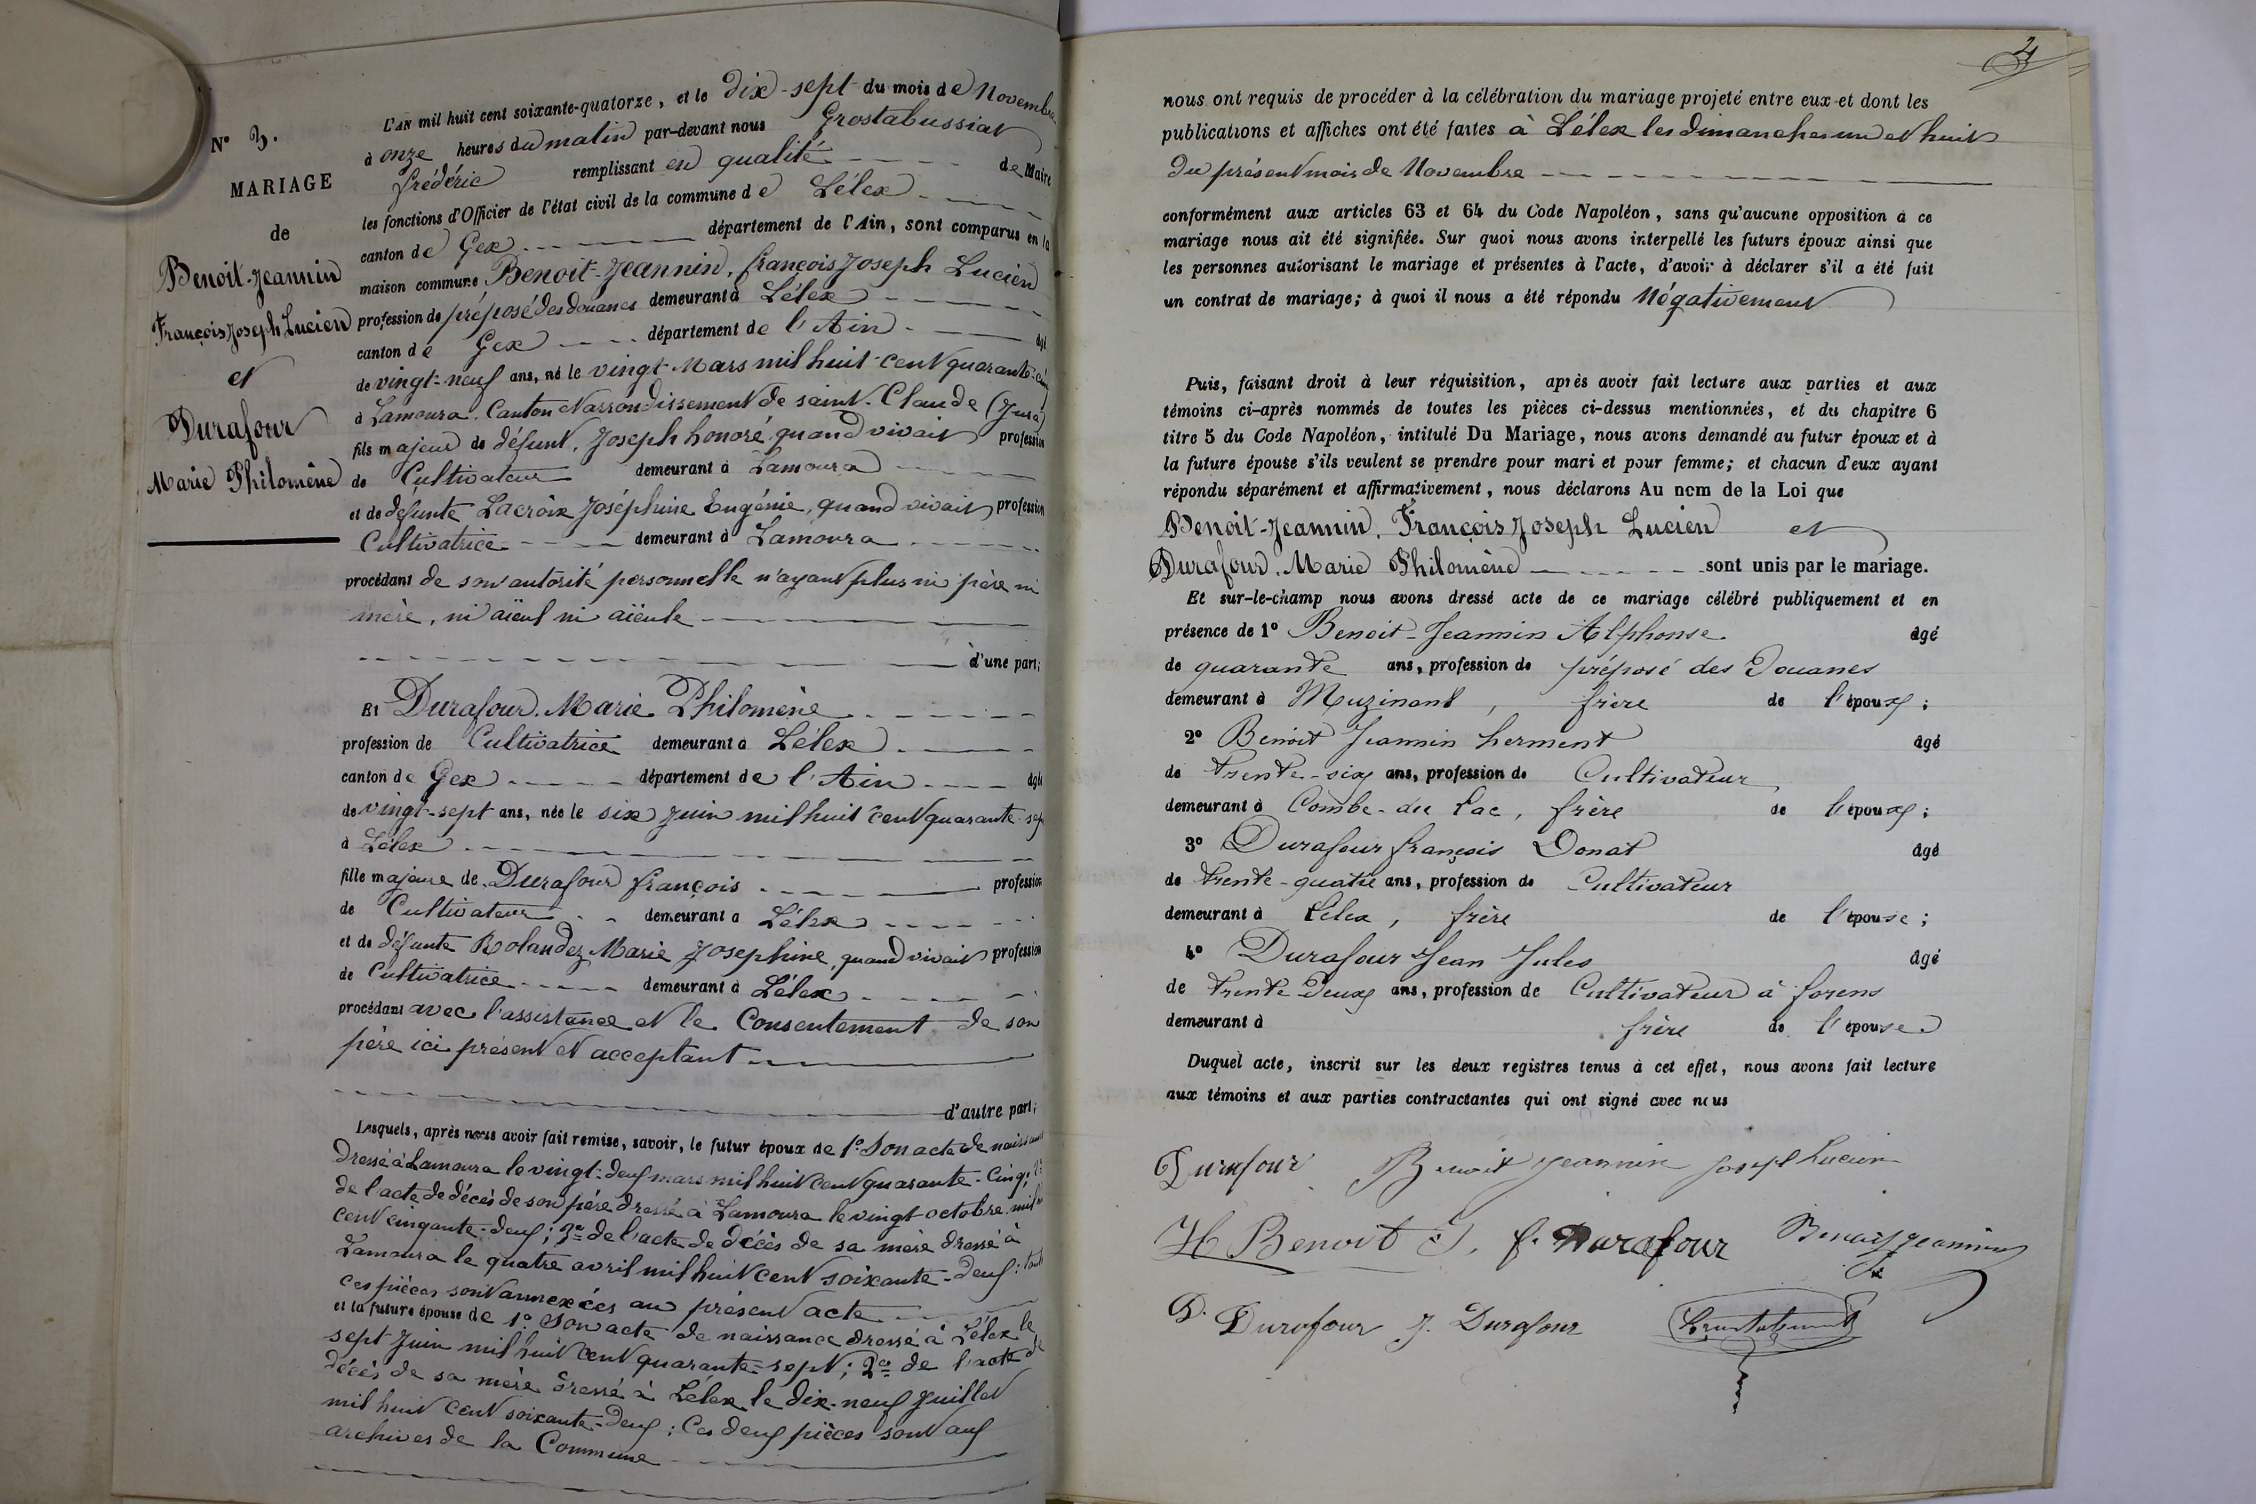 N° 3.
MARIAGE
de
Benoit-Jeannin
François Joseph Lucien
et
Durafour
Marie Philomène
L'AN mil huit cent soixante-quatorze, et le dix-sept du mois de Novembre
à onze heures du matin par-devant nous Grostabussiat
frédéric remplissant en qualité de Maire
les fonctions d'Officier de l'état civil de la commune de Lélex
canton de Gex département de l'Ain, sont comparus en la
maison commune Benoit-Jeannin, françois Joseph Lucien
profession de préposé des douanes demeurant à Lélex
canton de Gex département de l'Ain âgé
de vingt-neuf ans, né le vingt Mars mil huit cent quarante-cinq
à Lamoura. Canton et arrondissement de saint-Claude (Jura)
fils majeur de défunt, Joseph honoré, quand vivait profession
de Cultivateur demeurant à Lamoura
et de défunte Lacroix Joséphine Eugénie, quand vivait profession
Cultivatrice demeurant à Lamoura
procédant de son autorité personnelle n'ayant plus ni père ni
mère, ni aïeul ni aïeule
d'une part;
Et Durafour. Marie Philomène
profession de Cultivatrice demeurant à Lélex
canton de Gex département de l'Ain âgée
de vingt-sept ans, née le six Juin mil huit cent quarante-sept
à Lélex
fille majeure de Durafour françois profession
de Cultivateur demeurant à Lélex
et de défunte Rolandez Marie Josephine, quand vivait profession
de Cultivatrice demeurant à Lélex
procédant avec l'assistance et le Consentement de son
père ici présent et acceptant
d'autre part;
Lesquels, après nous avoir fait remise, savoir, le futur époux de 1° Son acte de naissance
dressé à Lamoura le vingt-deux mars mil huit cent quarante-cinq; 2°
de l'acte de décès de son père dressé à Lamoura le vingt octobre mil huit
cent cinqante-deux; 3° de l'acte de décès de sa mère dressé à
Lamoura le quatre avril mil huit cent soixante-deux; toutes
ces pièces sont annexées au présent acte
et la future épouse de 1° Son acte de naissance dressé à Lélex le
sept Juin mil huit cent quarante-sept; 2° de l'acte de
décès de sa mère dressé à Lélex le dix-neuf Juillet
mil huit cent soixante-deux; Ces deux pièces sont aux
archives de la Commune
nous ont requis de procéder à la célébration du mariage projeté entre eux et dont les
publications et affiches ont été faites à Lélex les dimanches un et huit
du présent mois de Novembre
conformément aux articles 63 et 64 du Code Napoléon, sans qu'aucune opposition à ce
mariage nous ait été signifiée. Sur quoi nous avons interpellé les futurs époux ainsi que
les personnes autorisant le mariage et présentes à l'acte, d'avoir à déclarer s'il a été fait
un contrat de mariage; à quoi il nous a été répondu Négativement
Puis, faisant droit à leur réquisition, après avoir fait lecture aux parties et aux
témoins ci-après nommés de toutes les pièces ci-dessus mentionnées, et du chapitre 6
titre 5 du Code Napoléon, intitulé Du Mariage, nous avons demandé au futur époux et à
la future épouse s'ils veulent se prendre pour mari et pour femme; et chacun d'eux ayant
répondu séparément et affirmativement, nous déclarons Au nom de la Loi que
Benoit-Jeannin. François Joseph Lucien et
Durafour. Marie Philomène sont unis par le mariage.
Et sur-le-champ nous avons dressé acte de ce mariage célébré publiquement et en
présence de 1° Benoit-Jeannin Alphonse âgé
de quarante ans, profession de préposé des Douanes
demeurant à Muzinant, frère de l'époux;
2° Benoit Jeannin herment âgé
de trente-six ans, profession de Cultivateur
demeurant à Combe-du Lac, frère de l'époux;
3° Durafour françois Donat âgé
de trente-quatre ans, profession de Cultivateur
demeurant à Lélex, frère de l'épouse;
4° Durafour Jean Jules âgé
de trente deux ans, profession de Cultivateur à forens
demeurant à frère de l'épouse.
Duquel acte, inscrit sur les deux registres tenus à cet effet, nous avons fait lecture
aux témoins et aux parties contractantes qui ont signé avec nous
Durafour Benoit Jeannin Joseph Lucien
H Benoit J. f. Durafour Benoit Jeannin
D. Durafour J. Durafour